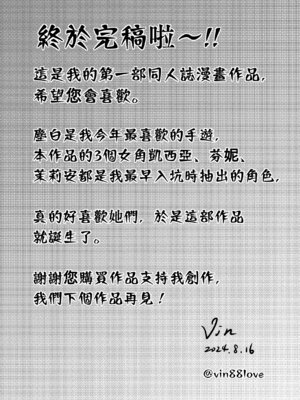 終於完稿啦～!!
這是我的第一部同人誌漫畫作品,
希望您會喜歡。
塵白是我今年最喜歡的手遊,
本作品的3個女角凱西亞、芬妮、
茉莉安都是我最早入坑時抽出的角色,
真的好喜歡她們, 於是這部作品
就誕生了。
謝謝您購買作品支持我創作,
我們下個作品再見！
Vin
2024.8.16
@vin88love